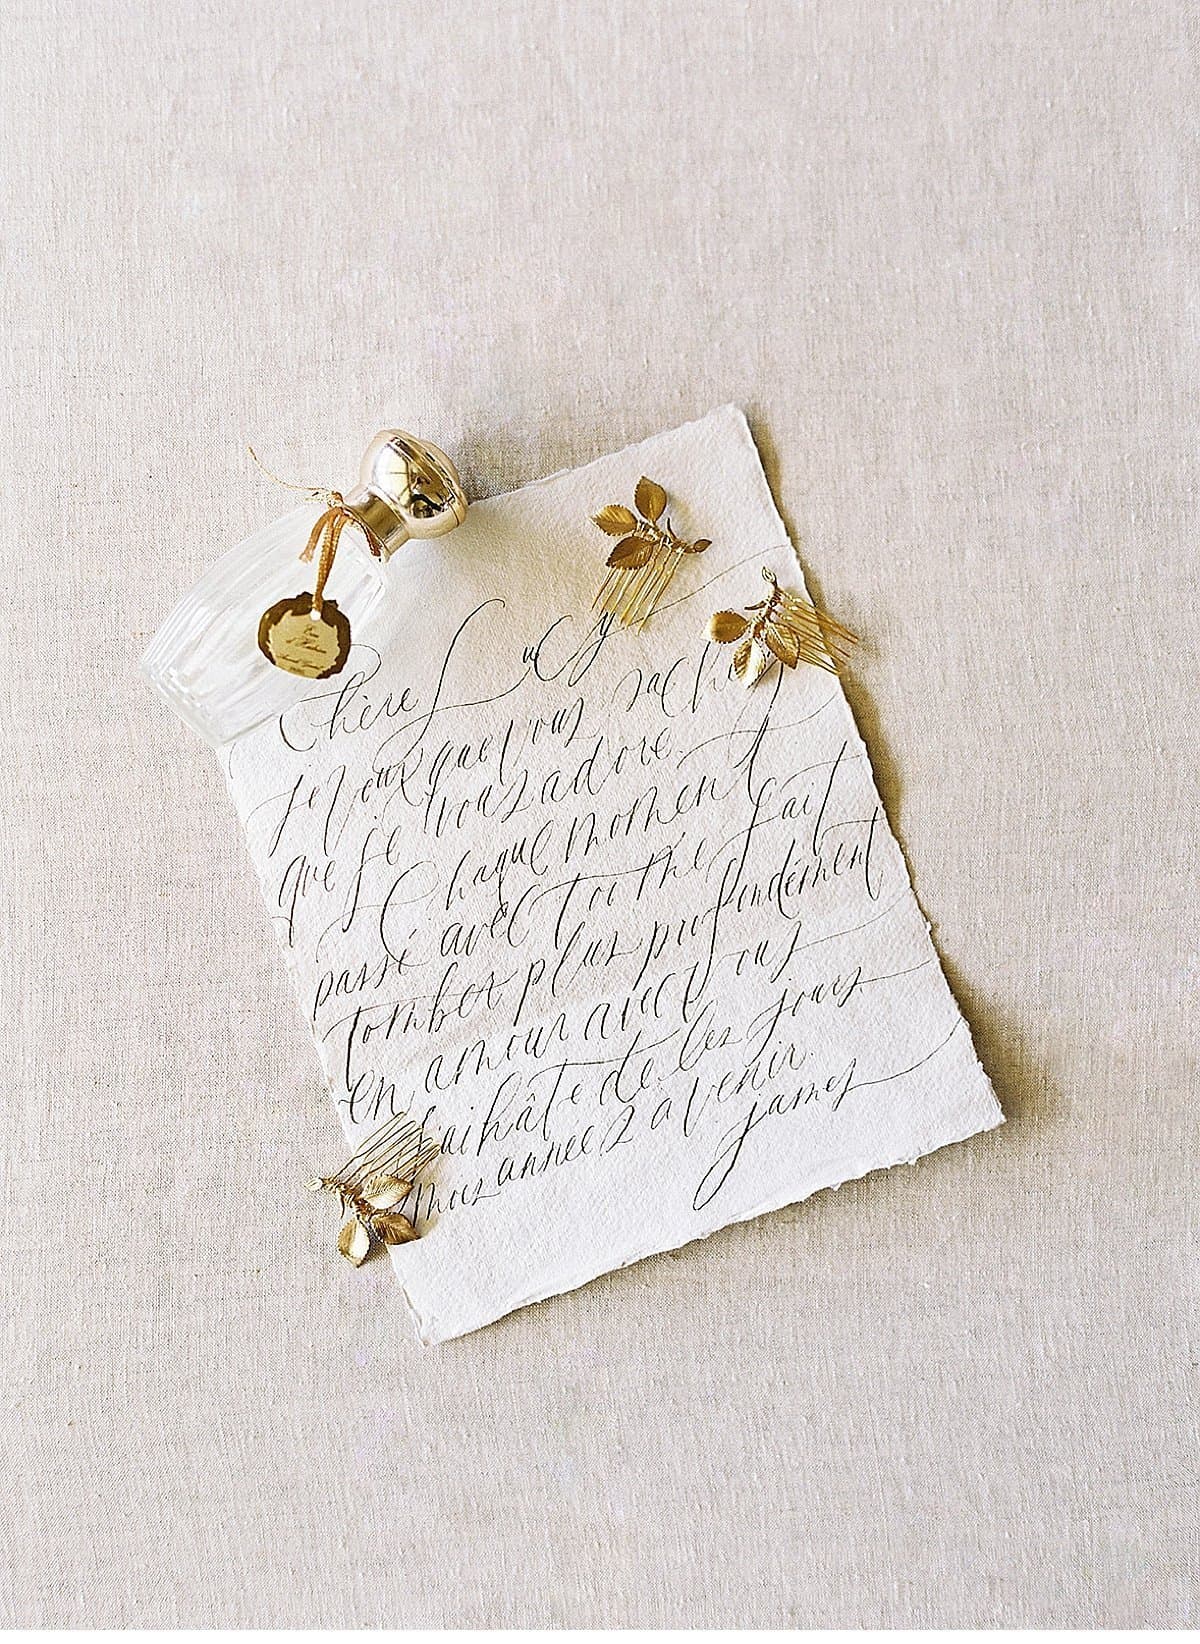 Eau
d'Hadrien
Annick Goutal
Chère Lucy
je veux que vous sachez
que je vous adore.
Chaque moment
passé avec toi me fait
tomber plus profondément
en amour avec vous
J'ai hâte de les jours
mois années a venir.
James